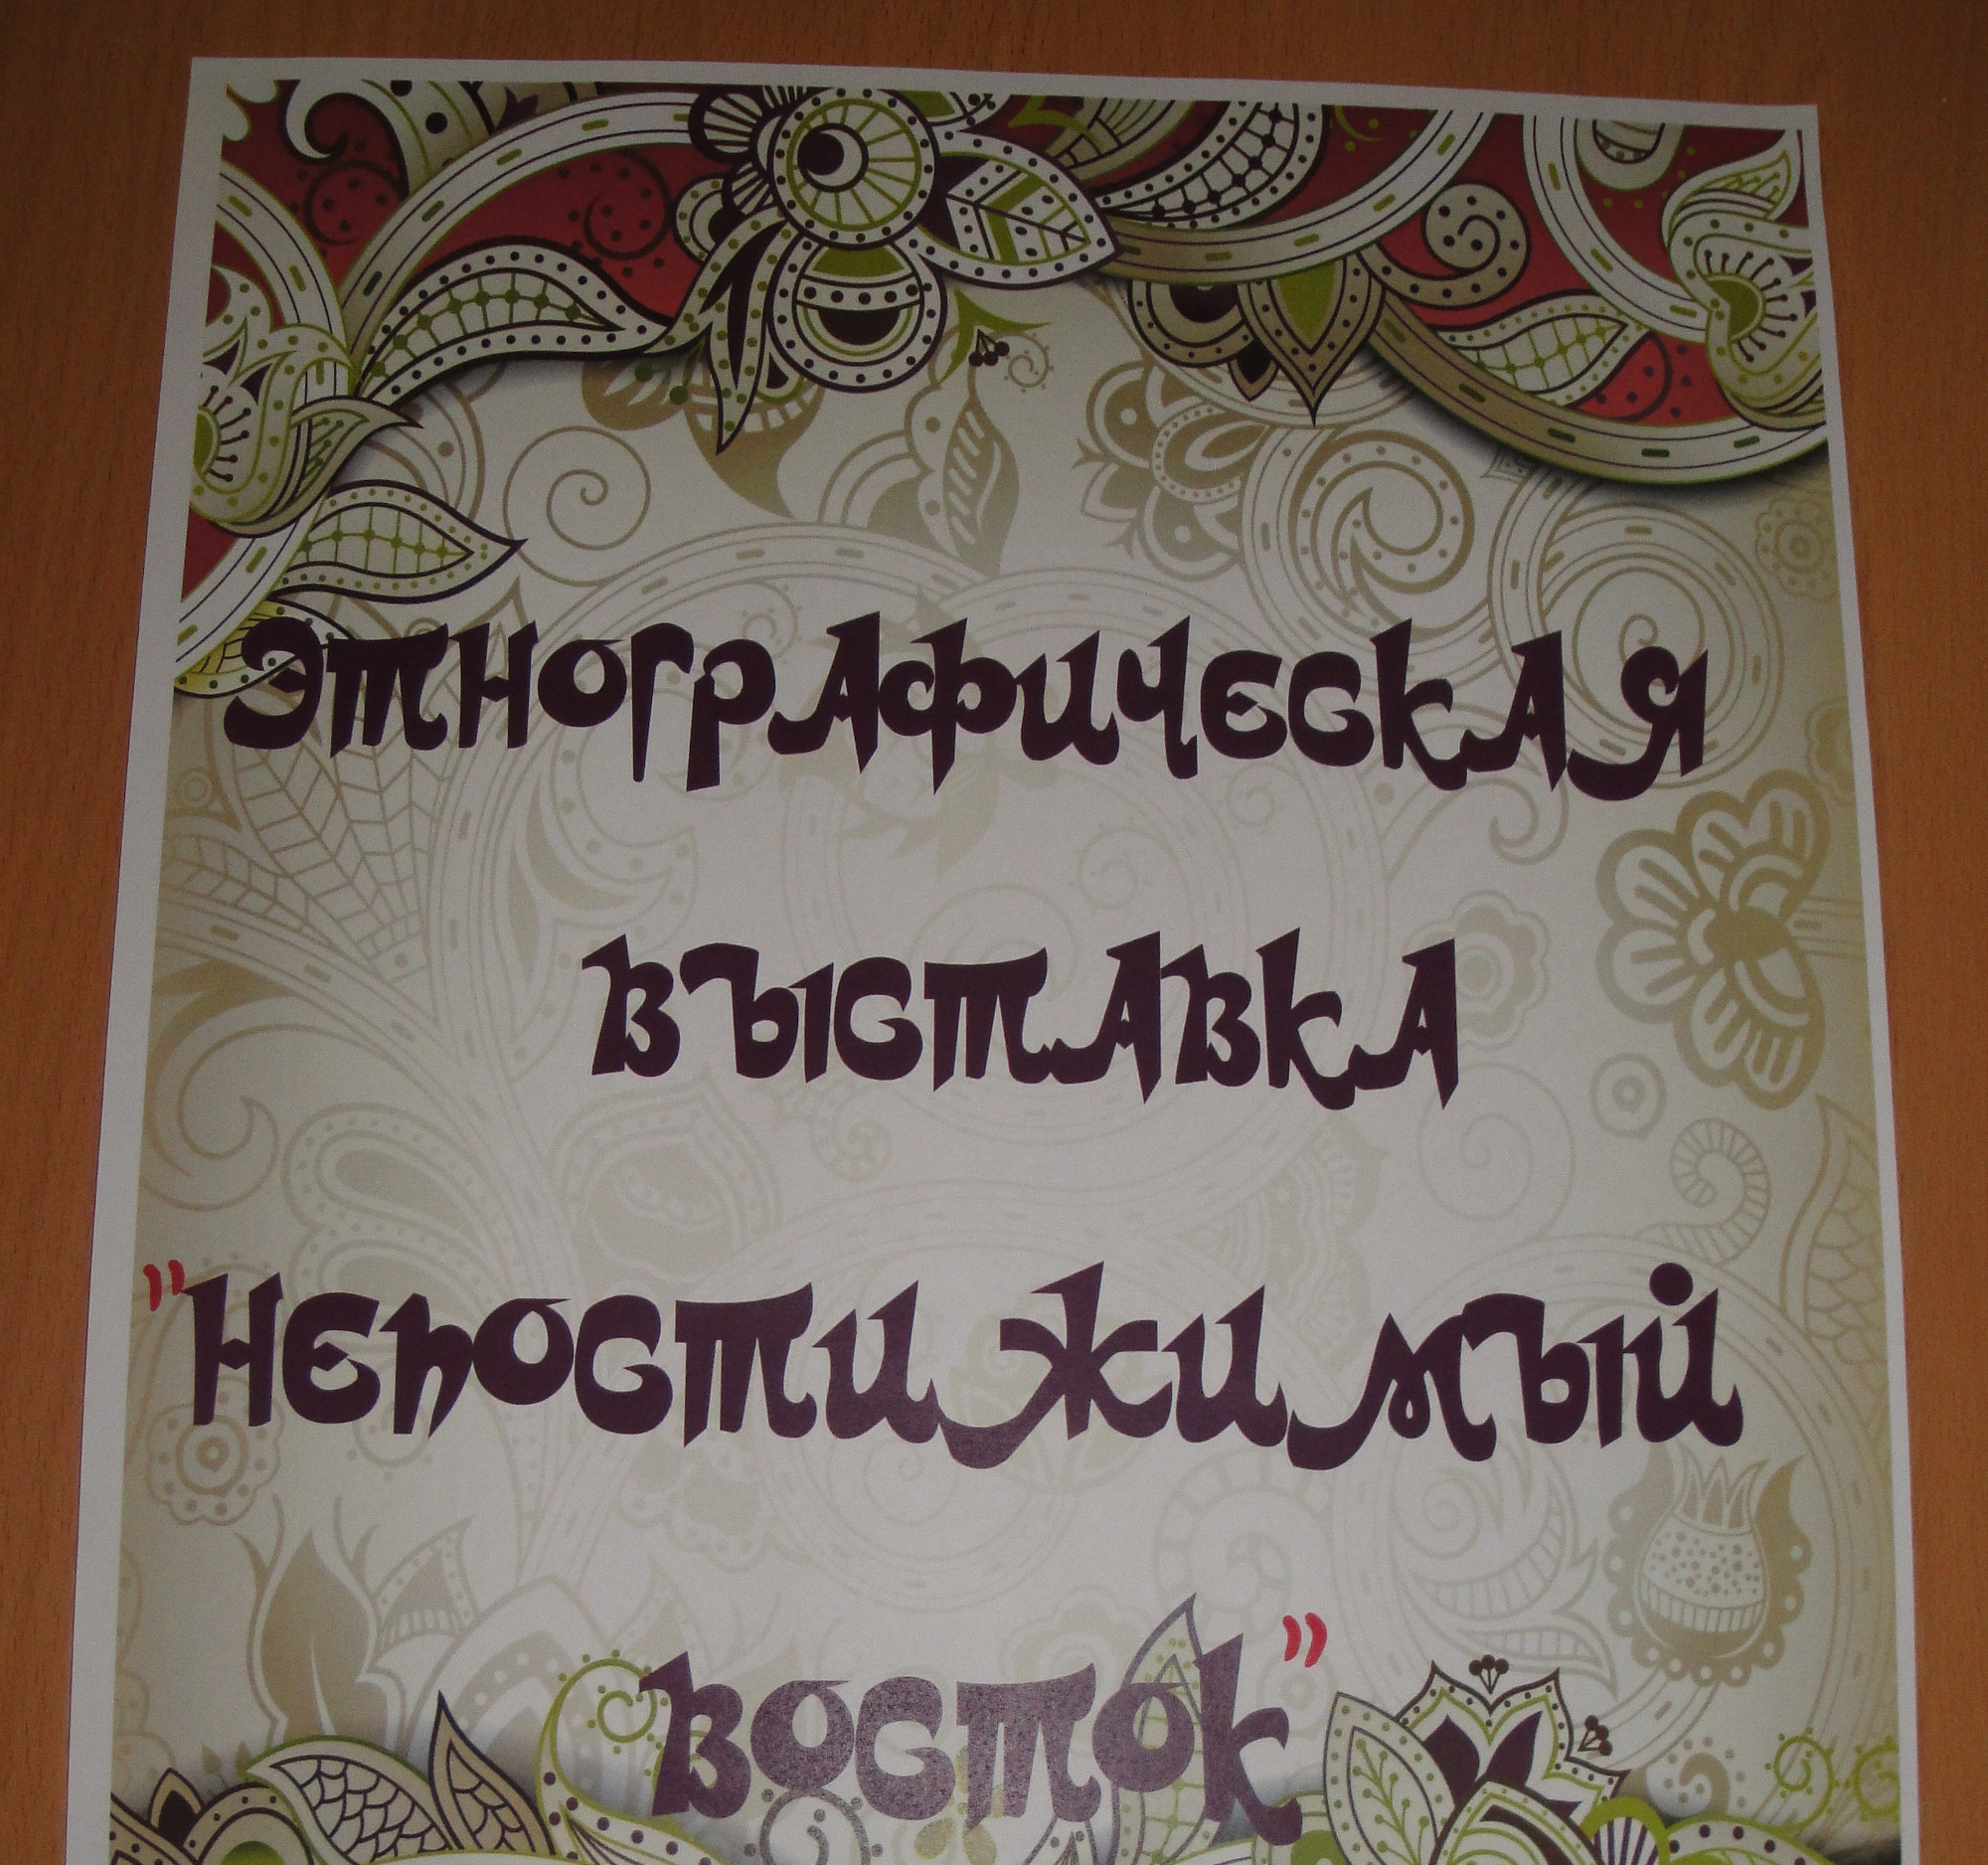 ЭТНОГРАФИЧЕСКАЯ
ВЫСТАВКА
"НЕПОСТИЖИМЫЙ
ВОСТОК"